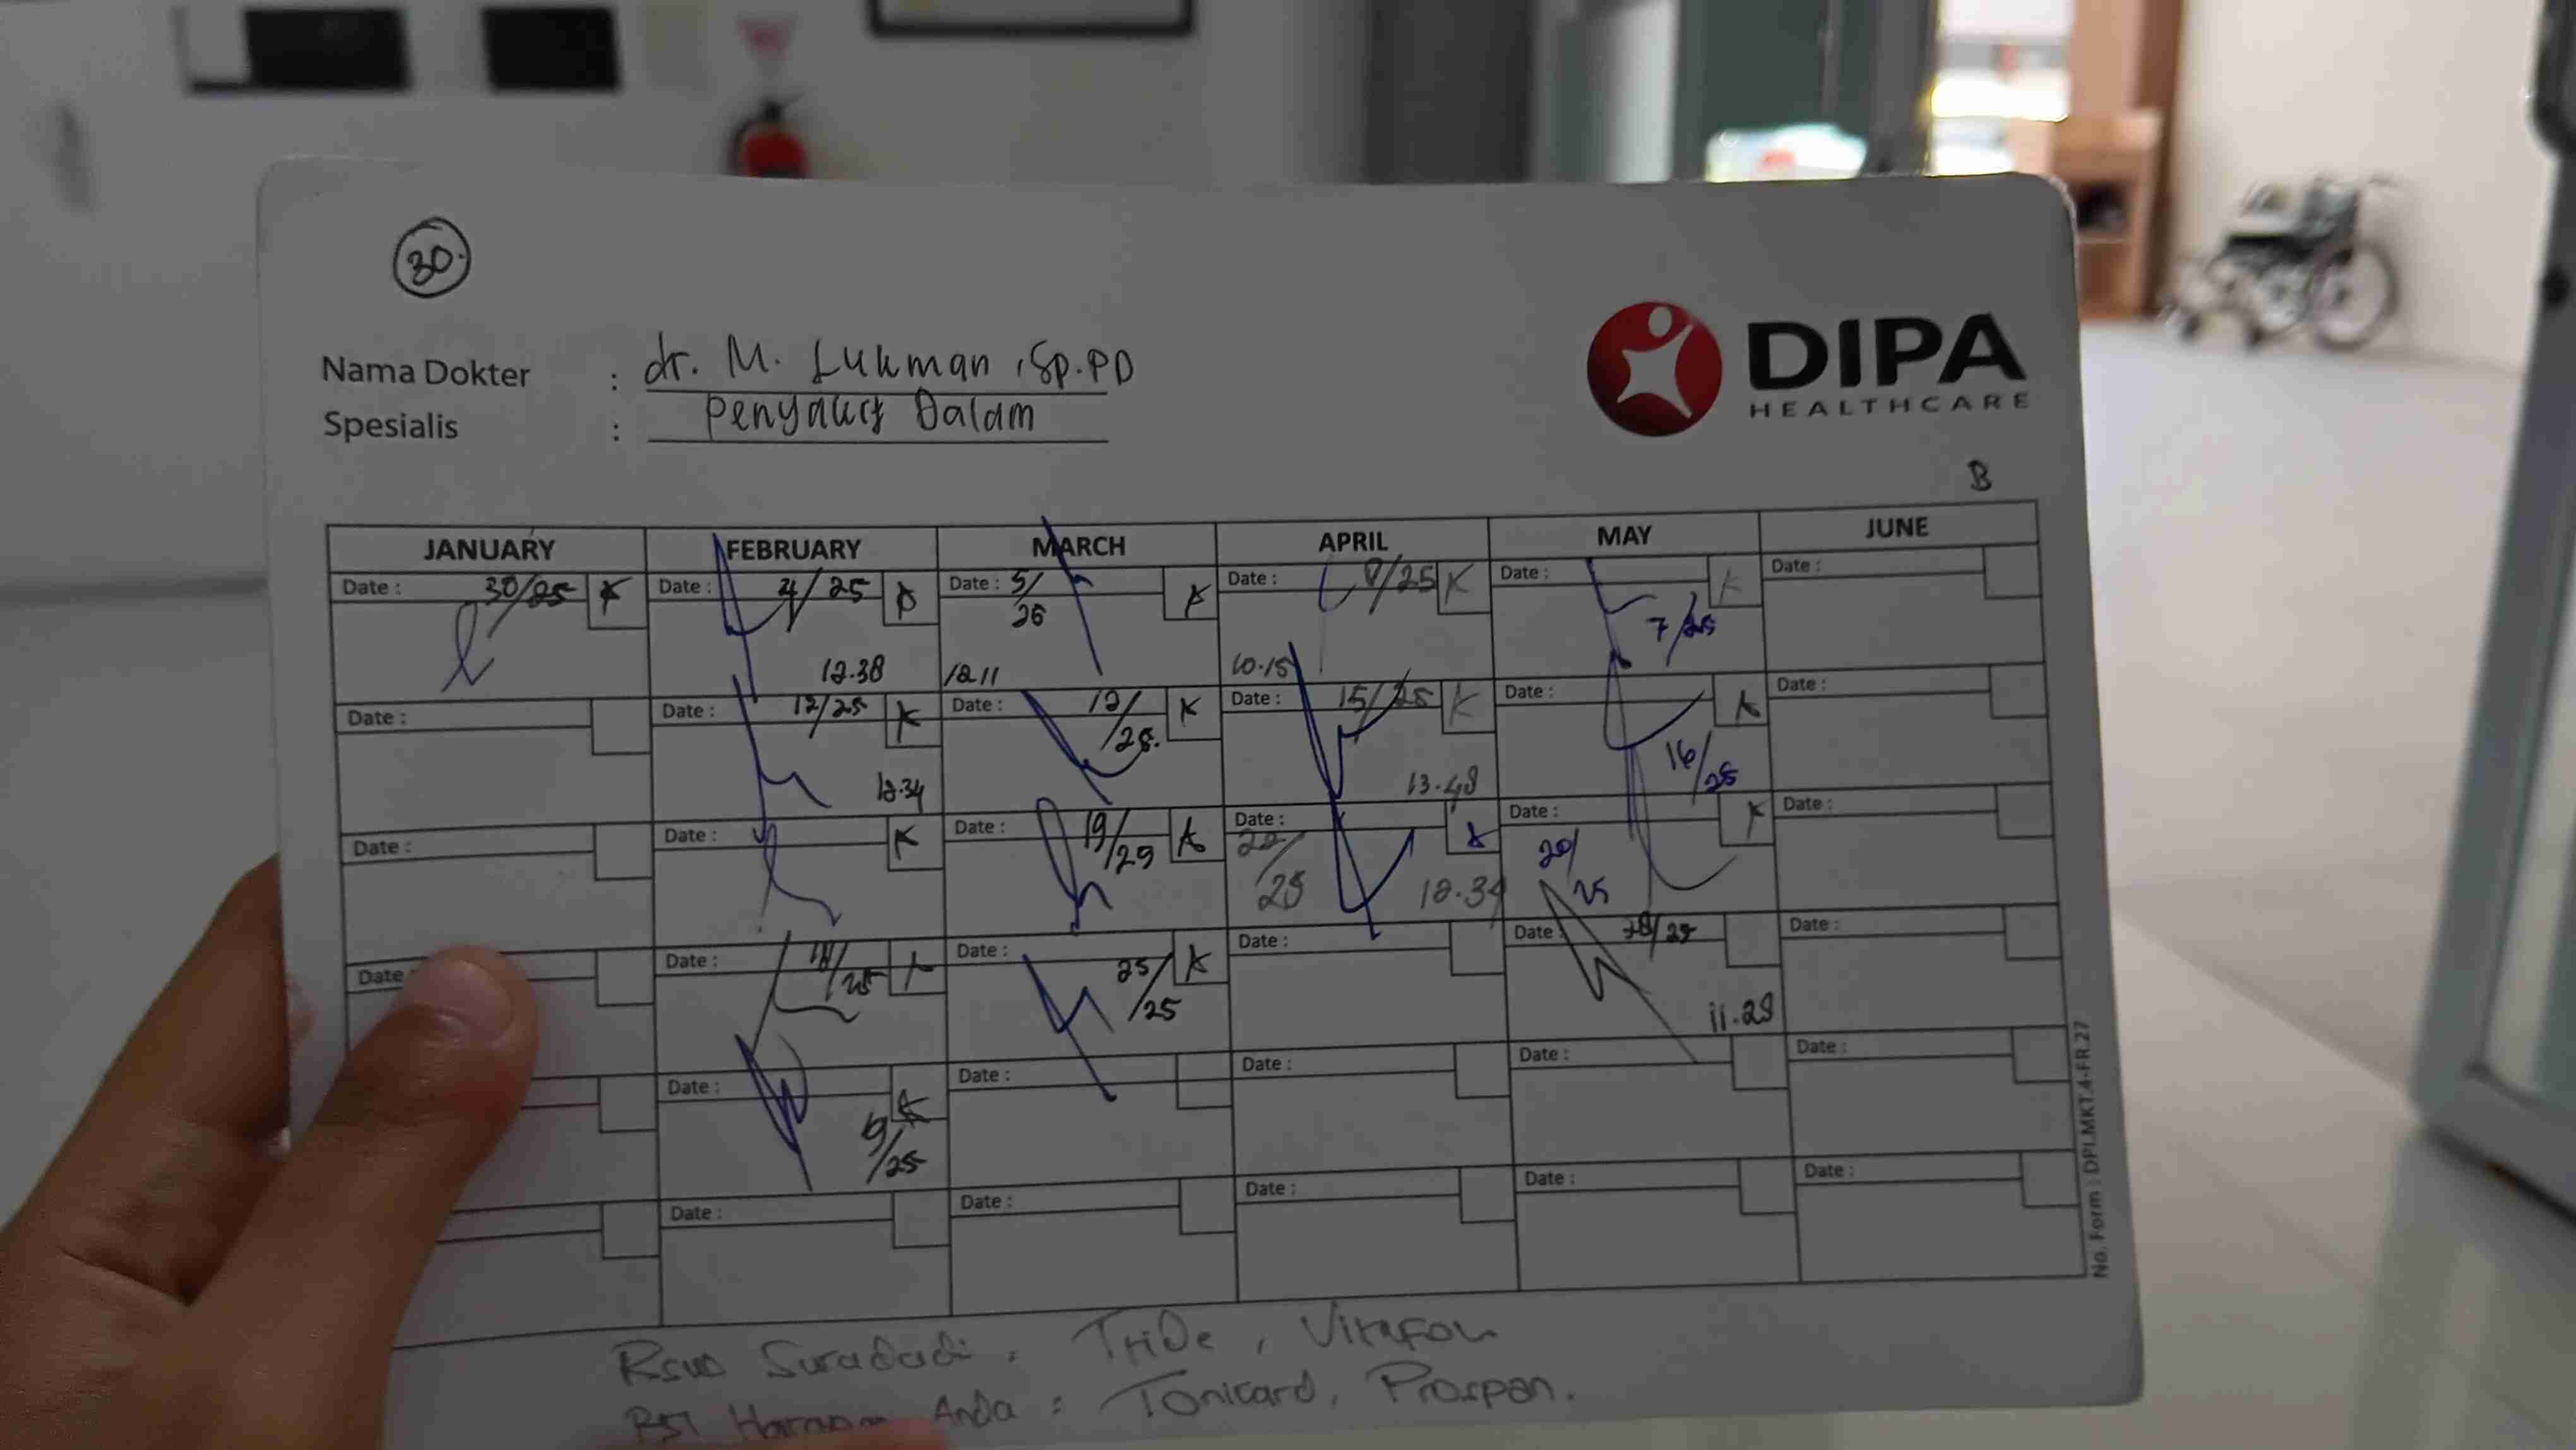 30.
Nama Dokter : dr. M. Lukman, Sp.PD
Spesialis : Penyakit Dalam
DIPA
HEALTHCARE
B
JANUARY FEBRUARY MARCH APRIL MAY JUNE
Date : 30/25 K Date : 4/25 Date : 5/ K Date : 8/25 K Date : K Date :
7/25
12.38 1211 10.15
Date : Date : 12/25 K Date : 12/25. K Date : 15/25 K Date : K Date :
16/25
12.34 13.48
Date : Date : K Date : 19/25 K Date : 22/25 Date : K Date :
12.34 20/25
Date Date : 18/25 Date : 25/25 K Date : Date : 28/25 Date :
11.28
Date : K Date : Date : Date : Date :
19/25
Date : Date : Date : Date : Date :
No. Form : DPI.MKT.4-FR.27
RSUD Suradadi : TriDe, Vitafol
RSI Harapan Anda : Tonicard, Prospan.